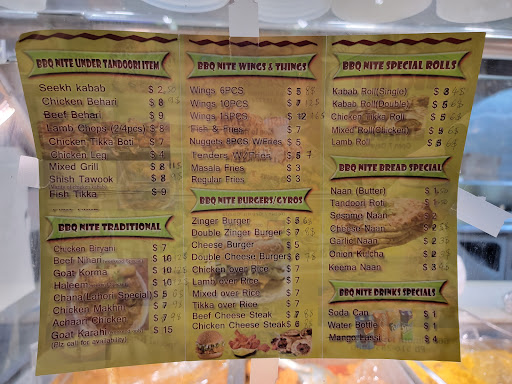 BBQ NITE UNDER TANDOORI ITEM
Seekh kabab $ 2
Chicken Behari $ 8
Beef Behari $ 9
Lamb Chops (2/4pcs) $
Chicken Tikka Boti $ 7
Chicken Leg $ 4
Mixed Grill $ 8
Shish Tawook $ 8
Fish Tikka $ 9
BBQ NITE TRADITIONAL
Chicken Biryani $ 7
Beef Nihari $ 10
Goat Korma $ 10
Haleem $ 10
Chana (Lahori Special) $ 5
Chicken Makhni $ 7
Achaari Chicken $ 7
Goat Karahi $ 15
(Plz call for availability)
BBQ NITE WINGS & THINGS
Wings 6PCS $ 5
Wings 10PCS $
Wings 15PCS $ 12
Fish & Fries $
Nuggets 8PCS W/Fries $ 5
Tenders W/Fries $ 5
Masala Fries $ 3
Regular Fries $ 3
BBQ NITE BURGERS/GYROS
Zinger Burger $ 5
Double Zinger Burger $ 7
Cheese Burger $ 5
Double Cheese Burger $ 6
Chicken over Rice $ 7
Lamb over Rice $ 7
Mixed over Rice $ 7
Tikka over Rice $ 7
Beef Cheese Steak $ 7
Chicken Cheese Steak $ 6
BBQ NITE SPECIAL ROLLS
Kabab Roll(Single) $ 3
Kabab Roll(Double) $ 5
Chicken Tikka Roll $ 5
Mixed Roll(Chicken) $
Lamb Roll $
BBQ NITE BREAD SPECIAL
Naan (Butter) $ 1
Tandoori Roti $ 1
Sesame Naan $ 2
Cheese Naan $ 2
Garlic Naan $ 2
Onion Kulcha $ 2
Keema Naan $ 3
BBQ NITE DRINKS SPECIALS
Soda Can $ 1
Water Bottle $ 1
Mango Lassi $ 4